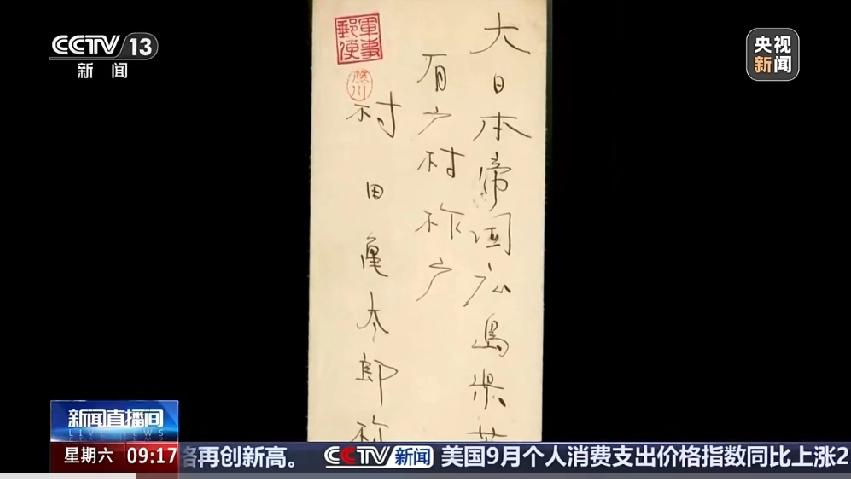 CCTV 13
新闻
央视
新闻
軍事
郵便
大日本帝国広島県
有户村柞户
村田亀太郎
新闻直播间
LIVE NEWS
星期六 09:17
格再创新高。 CCTV 新闻 美国9月个人消费支出价格指数同比上涨2